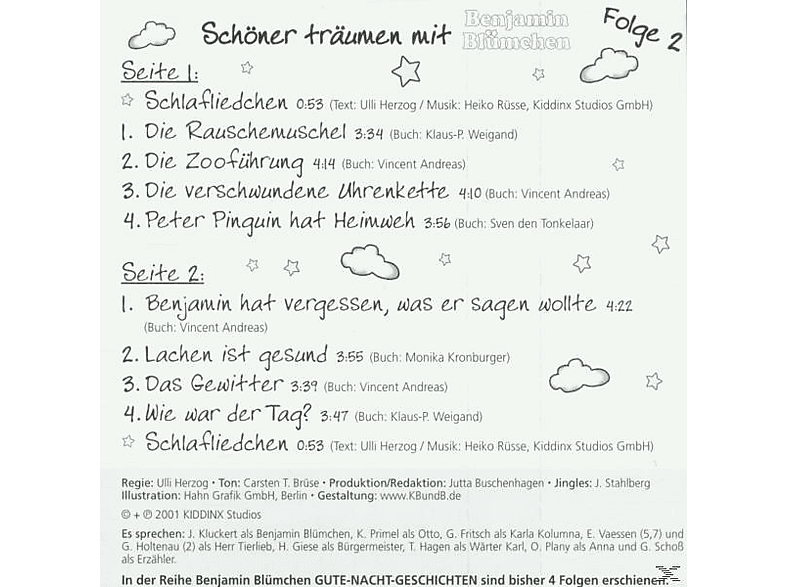 Schöner träumen mit Benjamin Blümchen Folge 2
Seite 1:
Schlafliedchen 0:53 (Text: Ulli Herzog / Musik: Heiko Rüsse, Kiddinx Studios GmbH)
1. Die Rauschemuschel 3:34 (Buch: Klaus-P. Weigand)
2. Die Zooführung 4:14 (Buch: Vincent Andreas)
3. Die verschwundene Uhrenkette 4:10 (Buch: Vincent Andreas)
4. Peter Pinguin hat Heimweh 3:56 (Buch: Sven den Tonkelaar)
Seite 2:
1. Benjamin hat vergessen, was er sagen wollte 4:22
(Buch: Vincent Andreas)
2. Lachen ist gesund 3:55 (Buch: Monika Kronburger)
3. Das Gewitter 3:39 (Buch: Vincent Andreas)
4. Wie war der Tag? 3:47 (Buch: Klaus-P. Weigand)
Schlafliedchen 0:53 (Text: Ulli Herzog / Musik: Heiko Rüsse, Kiddinx Studios GmbH)
Regie: Ulli Herzog • Ton: Carsten T. Brüse • Produktion/Redaktion: Jutta Buschenhagen • Jingles: J. Stahlberg
Illustration: Hahn Grafik GmbH, Berlin • Gestaltung: www.KBundB.de
© + ℗ 2001 KIDDINX Studios
Es sprechen: J. Kluckert als Benjamin Blümchen, K. Primel als Otto, G. Fritsch als Karla Kolumna, E. Vaessen (5,7) und
G. Holtenau (2) als Herr Tierlieb, H. Giese als Bürgermeister, T. Hagen als Wärter Karl, O. Plany als Anna und G. Schoß
als Erzähler.
In der Reihe Benjamin Blümchen GUTE-NACHT-GESCHICHTEN sind bisher 4 Folgen erschienen.